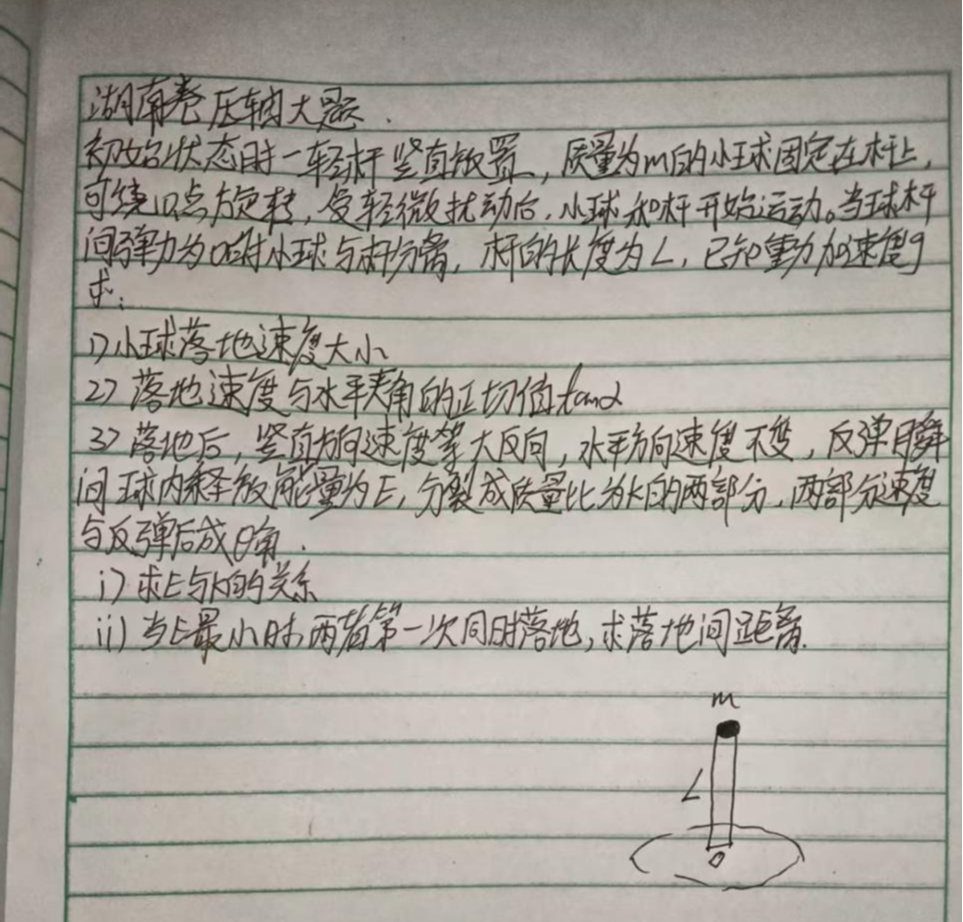 湖南卷压轴大题.
初始状态时一轻杆竖直放置,质量为m的小球固定在杆上,
可绕O点旋转,受轻微扰动后,小球和杆开始运动。当球杆
间弹力为0时小球与杆分离,杆的长度为L,已知重力加速度g
求:
1)小球落地速度大小
2)落地速度与水平夹角的正切值tanα
3)落地后,竖直方向速度等大反向,水平方向速度不变,反弹瞬
间球内释放能量为E,分裂成质量比为k的两部分,两部分速度
与反弹后成θ角.
i)求E与k的关系
ii)当E最小时,两者第一次同时落地,求落地间距离.
m
L
O